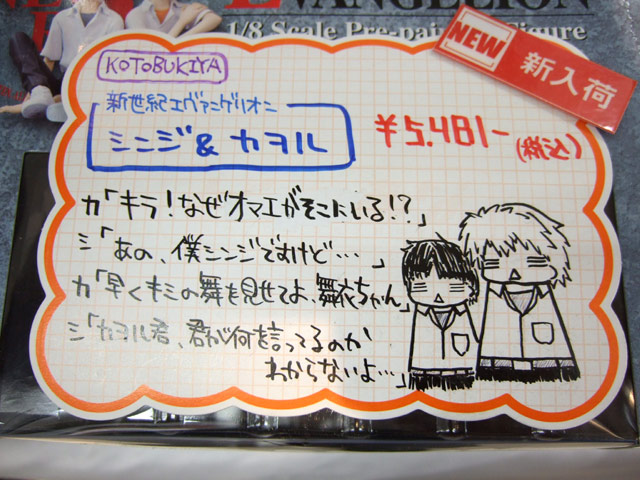 EVANGELION
1/8 Scale Pre-painted Figure
NEW 新入荷
KOTOBUKIYA
新世紀エヴァンゲリオン
シンジ&カヲル
¥5.481-(税込)
カ「キラ!なぜオマエがそこにいる!?」
シ「あの、僕シンジですけど…」
カ「早くキミの舞を見せてよ、舞衣ちゃん」
シ「カヲル君、君が何を言ってるのか
わからないよ…」